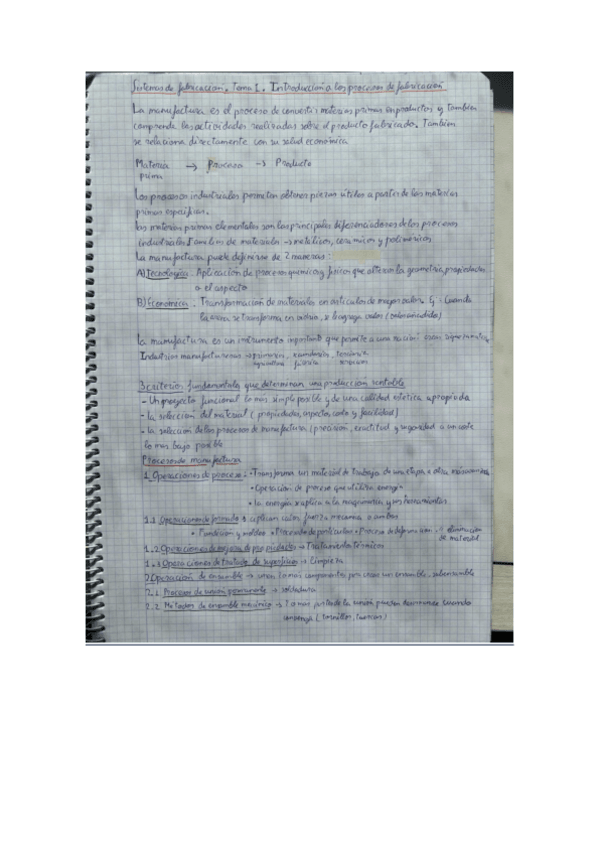 Sistemas de fabricación. Tema 1. Introducción a los procesos de fabricación
La manufactura es el proceso de convertir materias primas en productos y también
comprende las actividades realizadas sobre el producto fabricado. También
se relaciona directamente con su salud económica
Materia → Proceso → Producto
prima
Los procesos industriales permiten obtener piezas útiles a partir de las materias
primas específicas.
Las materias primas elementales son los principales diferenciadores de los procesos
industriales. Familias de materiales → metálicos, cerámicos y poliméricos
La manufactura puede definirse de 2 maneras:
A) Tecnológica. Aplicación de procesos químicos y físicos que alteran la geometría, propiedades
o el aspecto
B) Económica. Transformación de materiales en artículos de mayor valor. Ej: Cuando
la arena se transforma en vidrio, se le agrega valor (valor añadido)
La manufactura es un instrumento importante que permite a una nación
Industrias manufactureras → primarias, secundarias, terciarias
agricultura fábrica servicios
3 criterios fundamentales que determinan una producción rentable
- Un proyecto funcional lo más simple posible y de una calidad estética apropiada
- La selección del material (propiedades, aspecto, costo y facilidad)
- La selección de los procesos de manufactura (precisión, exactitud y seguridad a un coste
lo más bajo posible
Procesos de manufactura
1. Operaciones de proceso: • Transforma un material de trabajo de una etapa a otra
• Operación de proceso que utiliza energía
• La energía se aplica a la maquinaria y sus herramientas
1.1 Operaciones de formado: aplican calor, fuerza mecánica o ambos
• Fundición y moldeo • Procesado de partículas • Proceso de deformación • eliminación
de material
1.2 Operaciones de mejora de propiedades → Tratamiento térmicos
1.3 Operaciones de tratado de superficies → Limpieza
2 Operación de ensamble → unen 2 o más componentes para crear un ensamble, subensamble
2.1 Procesos de unión permanente → soldadura
2.2 Métodos de ensamble mecánico → 2 o más partes de la unión pueden desmontarse cuando
convenga (tornillos, tuercas)